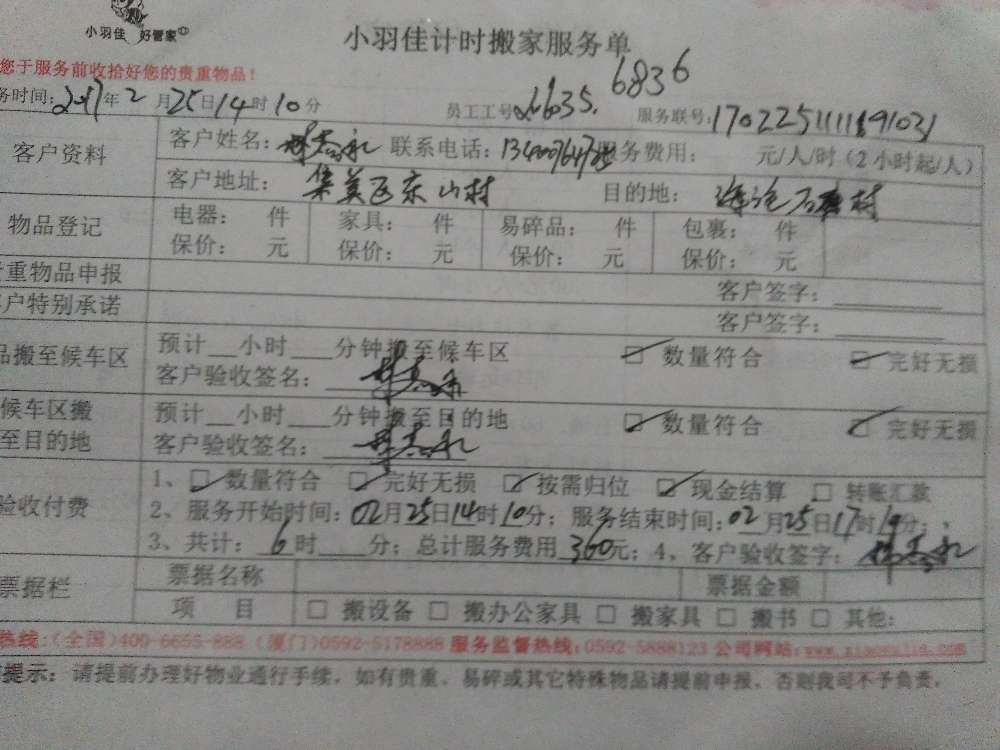 小羽佳 好管家
小羽佳计时搬家服务单
您于服务前收拾好您的贵重物品!
务时间:2017年2月25日14时10分 员工工号 6635. 6836 服务联号:
客户资料 客户姓名: 联系电话: 服务费用: 元/人/时(2小时起/人)
客户地址: 集美区东山村 目的地: 村
物品登记 电器: 件 家具: 件 易碎品: 件 包裹: 件
保价: 元 保价: 元 保价: 元 保价: 元
贵重物品申报 客户签字:
客户特别承诺 客户签字:
品搬至候车区 预计__小时____分钟搬至候车区 数量符合 完好无损
客户验收签名:
候车区搬至目的地 预计__小时____分钟搬至目的地 数量符合 完好无损
客户验收签名:
验收付费 1、数量符合 完好无损 按需归位 现金结算 转账汇款
2、服务开始时间:02月25日14时10分;服务结束时间:02月25日17时10分;
3、共计:6时____分;总计服务费用360元;4、客户验收签字:
票据栏 票据名称 票据金额
项 目 搬设备 搬办公家具 搬家具 搬书 其他:
热线:(全国)400-6655-888 (厦门)0592-5178888 服务监督热线:0592-5888123 公司网站:
提示:请提前办理好物业通行手续,如有贵重、易碎或其它特殊物品请提前申报,否则我司不予负责。